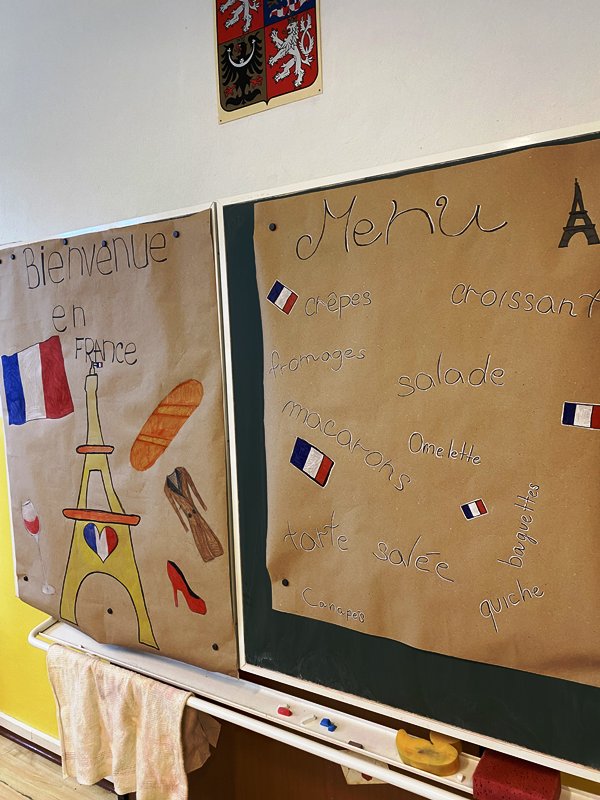 Bienvenue
en
FRANCE
Menu
crêpes
croissant
fromages
salade
macarons
Omelette
baguettes
tarte salée
quiche
Canapés